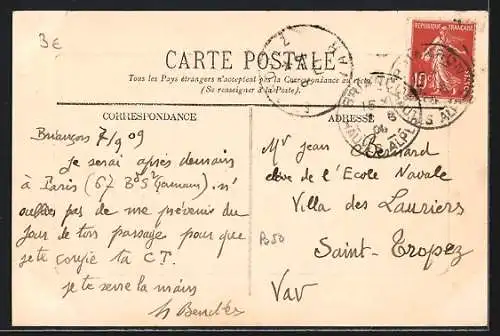 3€
CARTE POSTALE
Tous les Pays étrangers n'acceptent pas la Correspondance au recto
(Se renseigner à la Poste)
RÉPUBLIQUE FRANÇAISE
10c
POSTES
BRIANÇON
HAUTES ALPES
CORRESPONDANCE
Briançon 7/9 09
je serai après demain
à Paris (67 Bd St Germain). n'
oublies pas de me prévenir du
jour de ton passage pour que
je te confie ta C.T.
je te serre la main
ADRESSE
Mr Jean Bernard
élève de l'Ecole Navale
Villa des Lauriers
Saint-Tropez
Var
B50